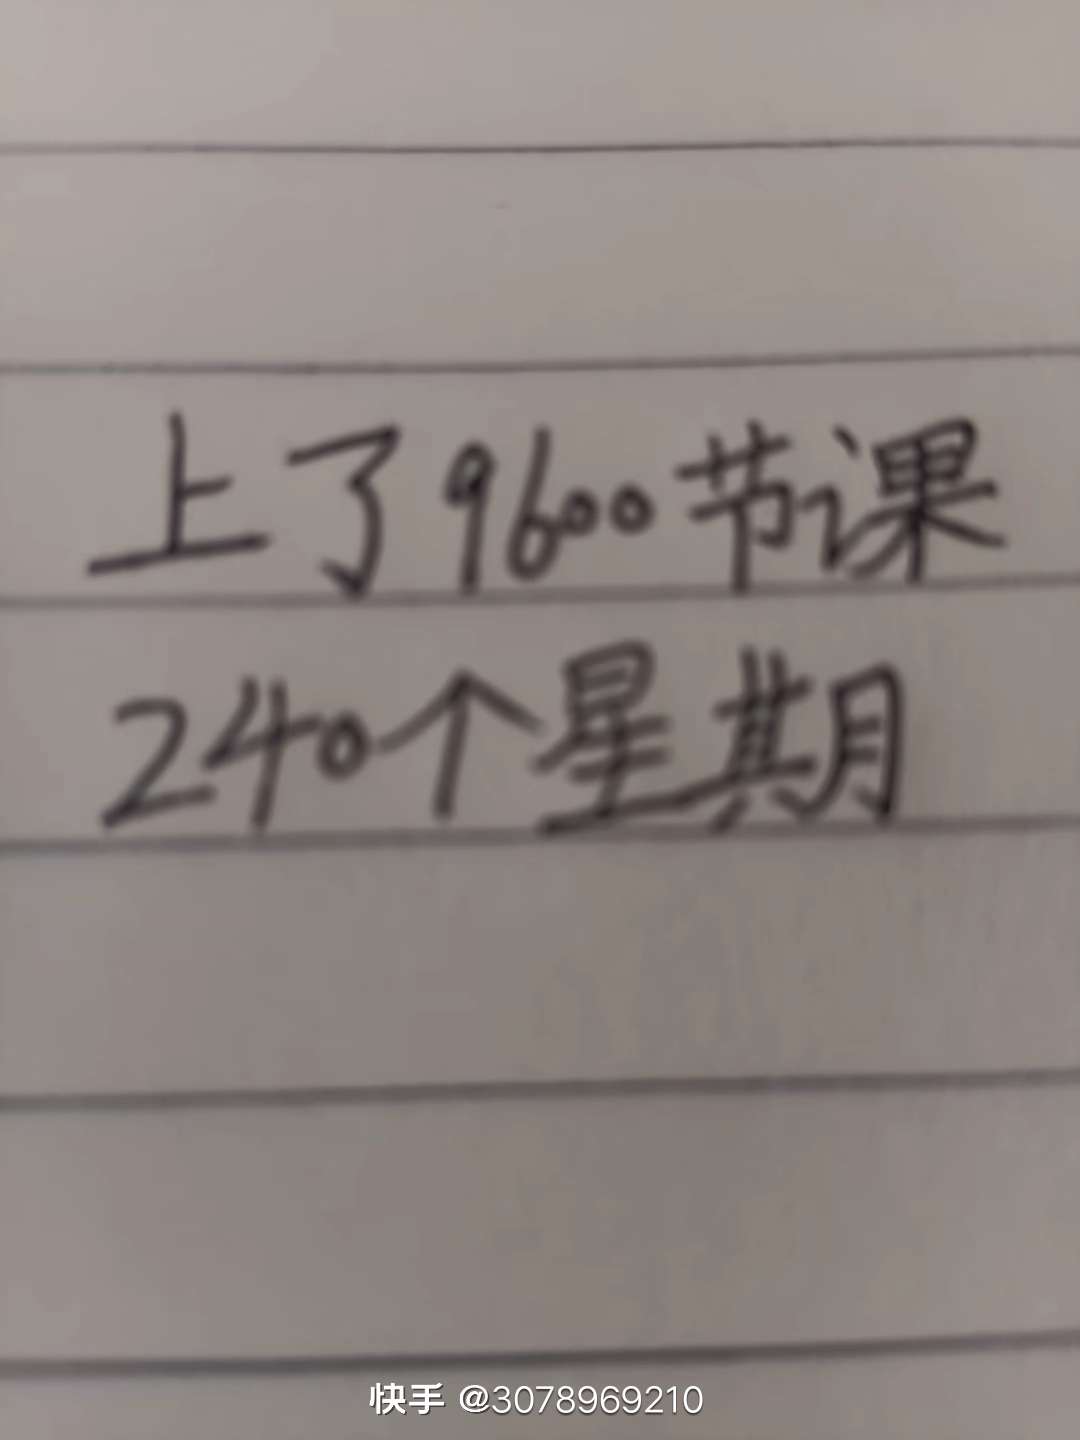 上了9600节课
240个星期
快手 @3078969210